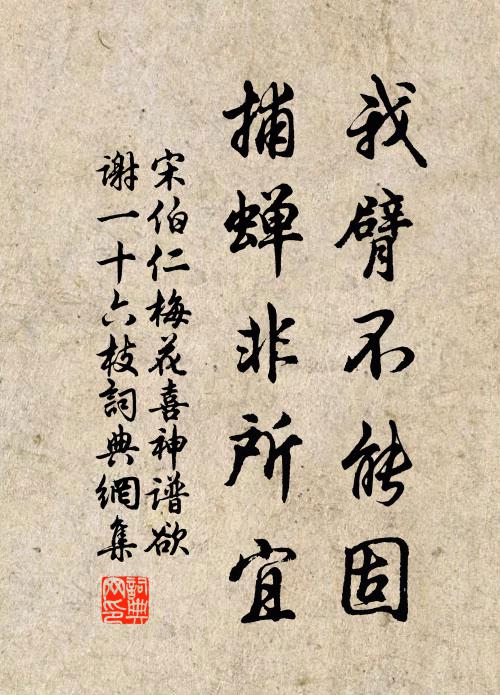 我臂不能固
捕蝉非所宜
宋伯仁梅花喜神谱欲
谢一十六枝詞典網集
詞典网印